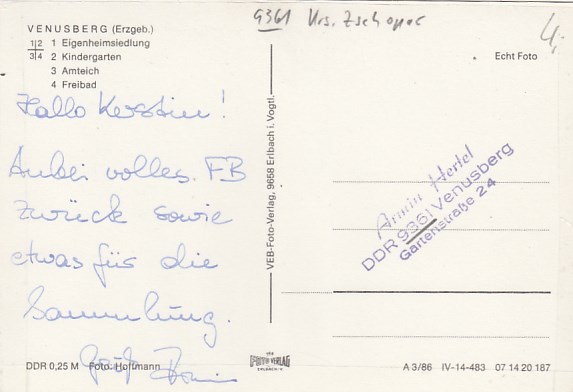 9361 Krs. Zschopau
4,-
VENUSBERG (Erzgeb.)
1 Eigenheimsiedlung
2 Kindergarten
3 Amteich
4 Freibad
1|2
3|4
Echt Foto
Hallo Kerstin!
Anbei volles FB
zurück sowie
etwas für die
Sammlung.
Gruß
VEB-Foto-Verlag, 9658 Erlbach i. Vogtl.
Armin Hertel
DDR 9361 Venusberg
Gartenstraße 24
DDR 0,25 M Foto: Hoffmann
FOTO VERLAG
ERLBACH
A 3/86 IV-14-483 07 14 20 187